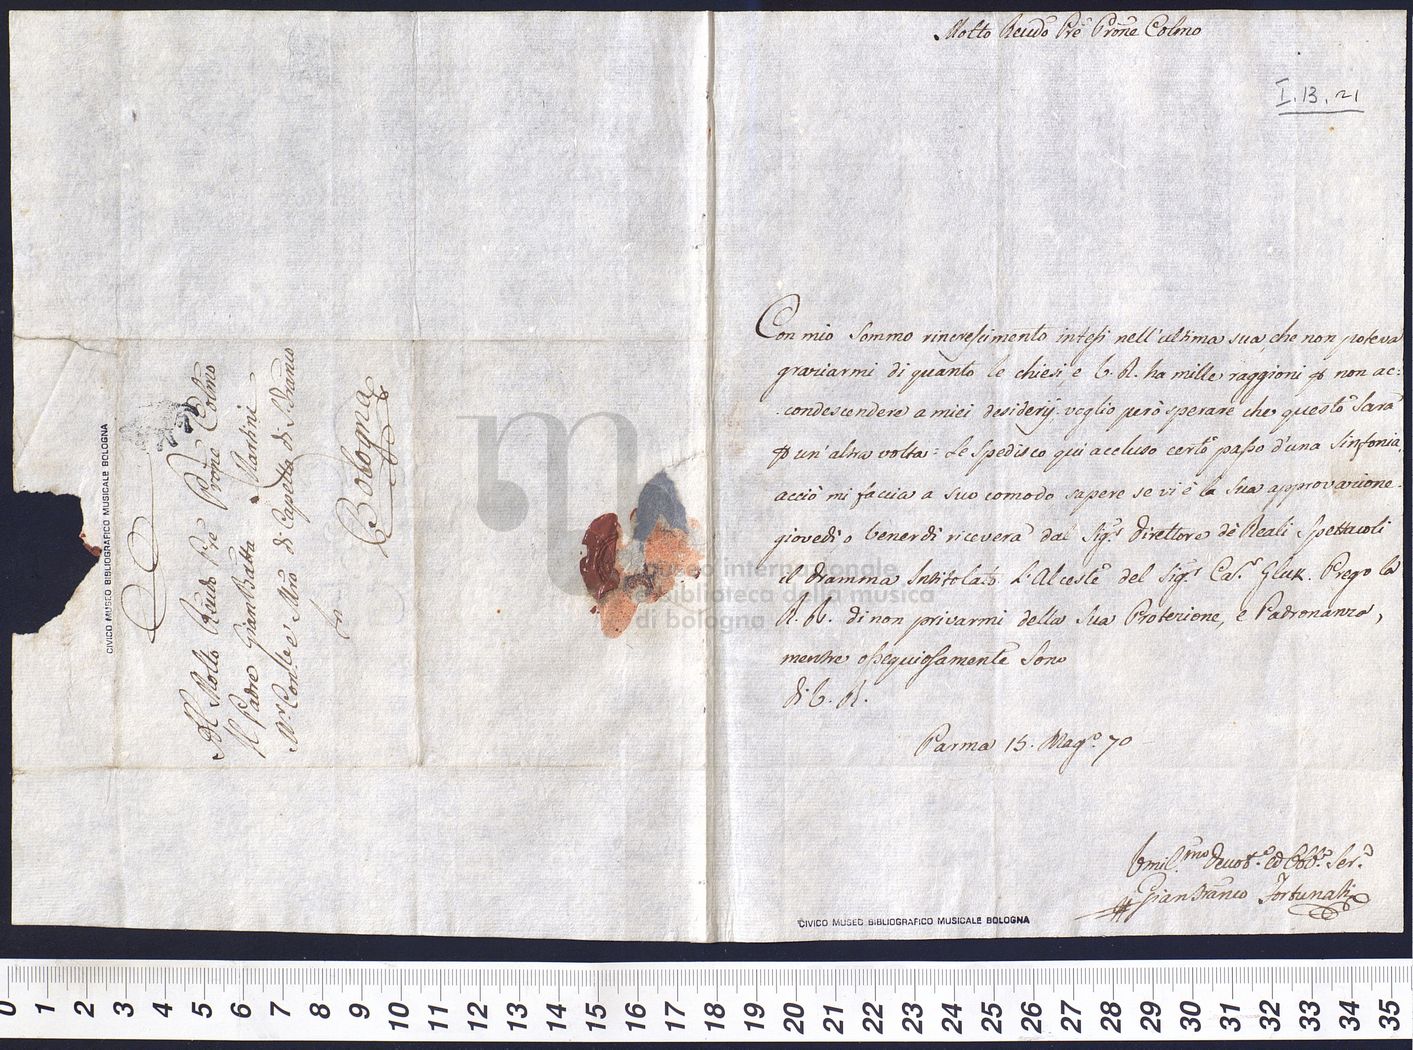 Molto Reudo Pre Prone Colmo
I. 13. 21
Con mio Sommo rincrescimento intesi nell'ultima sua, che non poteva
graziarmi di quanto le chiesi, e V. R. ha mille raggioni p non ac:
condescendere a miei desiderij. voglio però sperare che questo Sarà
p un'altra volta = Le Spedisco qui accluso certo passo d'una Sinfonia,
acciò mi faccia a suo comodo sapere se vi è la sua approvazione.
giovedì, o Venerdì riceverà dal Sigr Direttore de Reali Spettacoli
il dramma Intitolato L'Alceste del Sigr Car Gluk. Prego la
R. V. di non privarmi della Sua Protezione, e Padronanza,
mentre ossequiosamente Sono
Di V. R.
Parma 15. Mago 70
Vmil.mo Devot.o ed Obb.o Ser.e
GianFranco Fortunati
CIVICO MUSEO BIBLIOGRAFICO MUSICALE BOLOGNA
Al Molto Reudo Pre Prone Colmo
Il Padre GiamBatta Martini
Mr Conle e Mro di Capella di S. Franco
In
Bologna
CIVICO MUSEO BIBLIOGRAFICO MUSICALE BOLOGNA
museo internazionale
e biblioteca della musica
di bologna
0 1 2 3 4 5 6 7 8 9 10 11 12 13 14 15 16 17 18 19 20 21 22 23 24 25 26 27 28 29 30 31 32 33 34 35